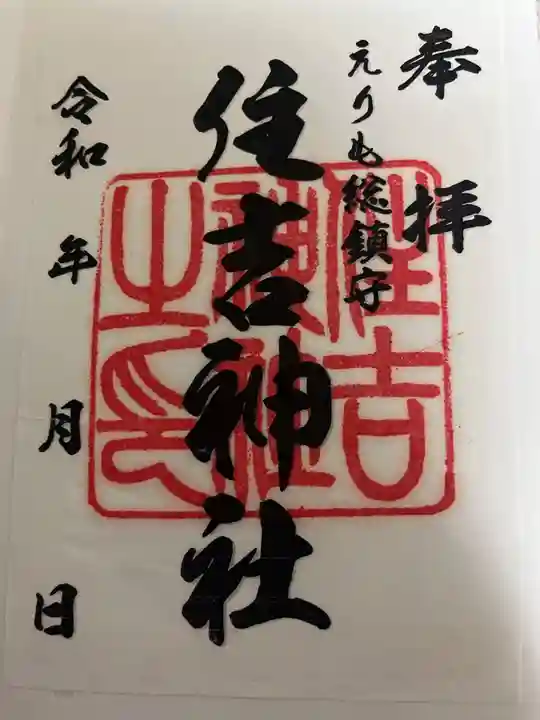 奉拝
えりも総鎮守
住吉神社
令和 年 月 日
住吉
神社
之印